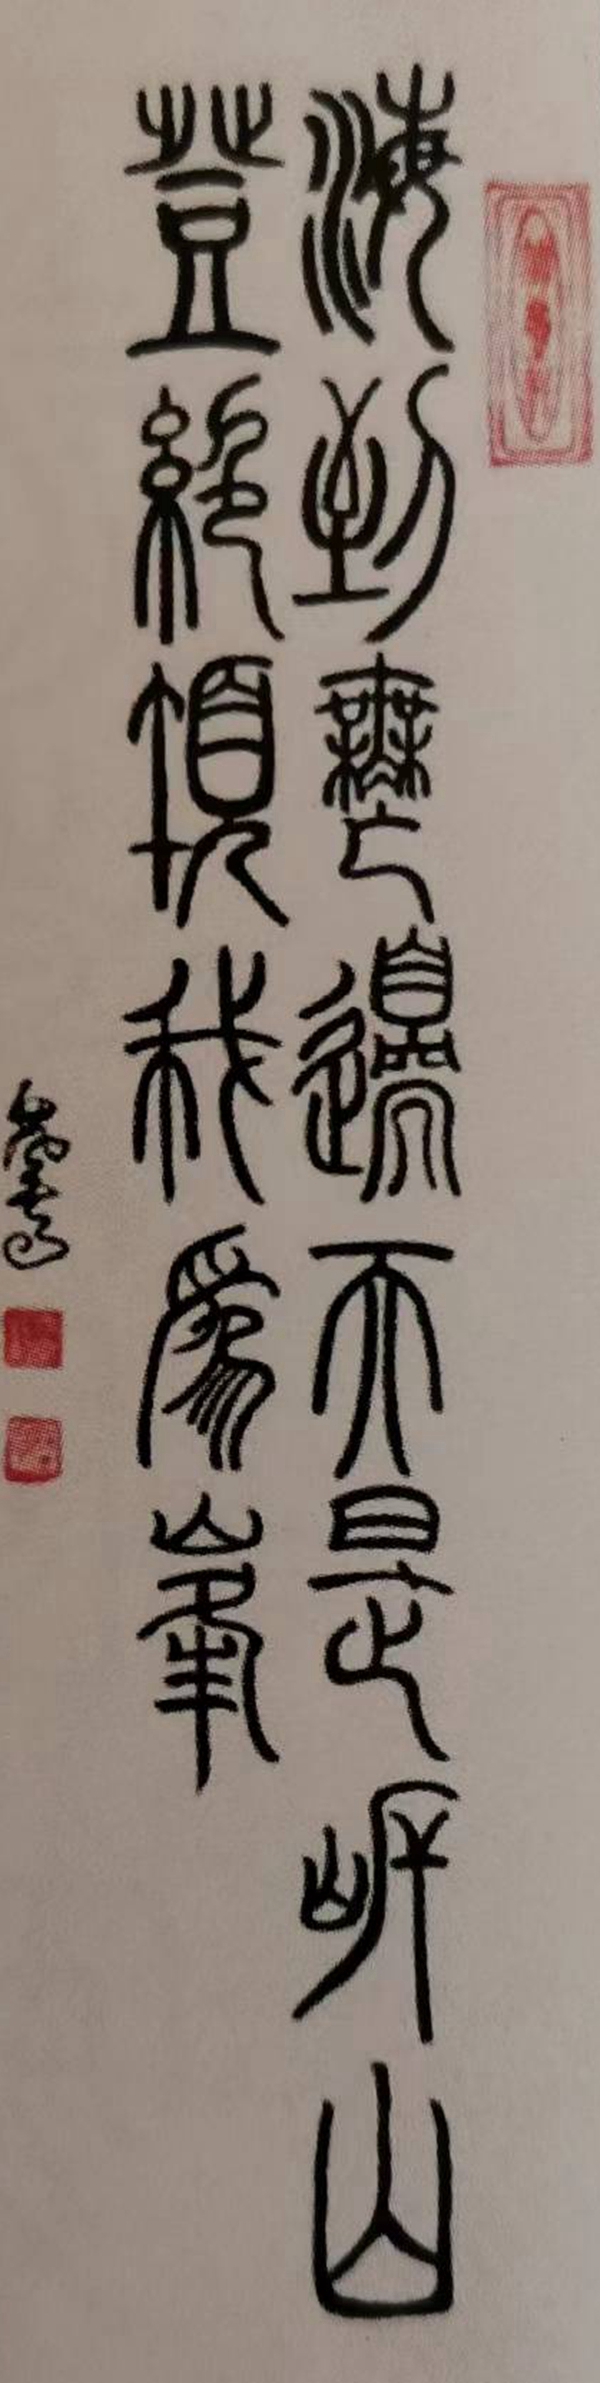 海到無邊天是岸山
登絕頂我為峯